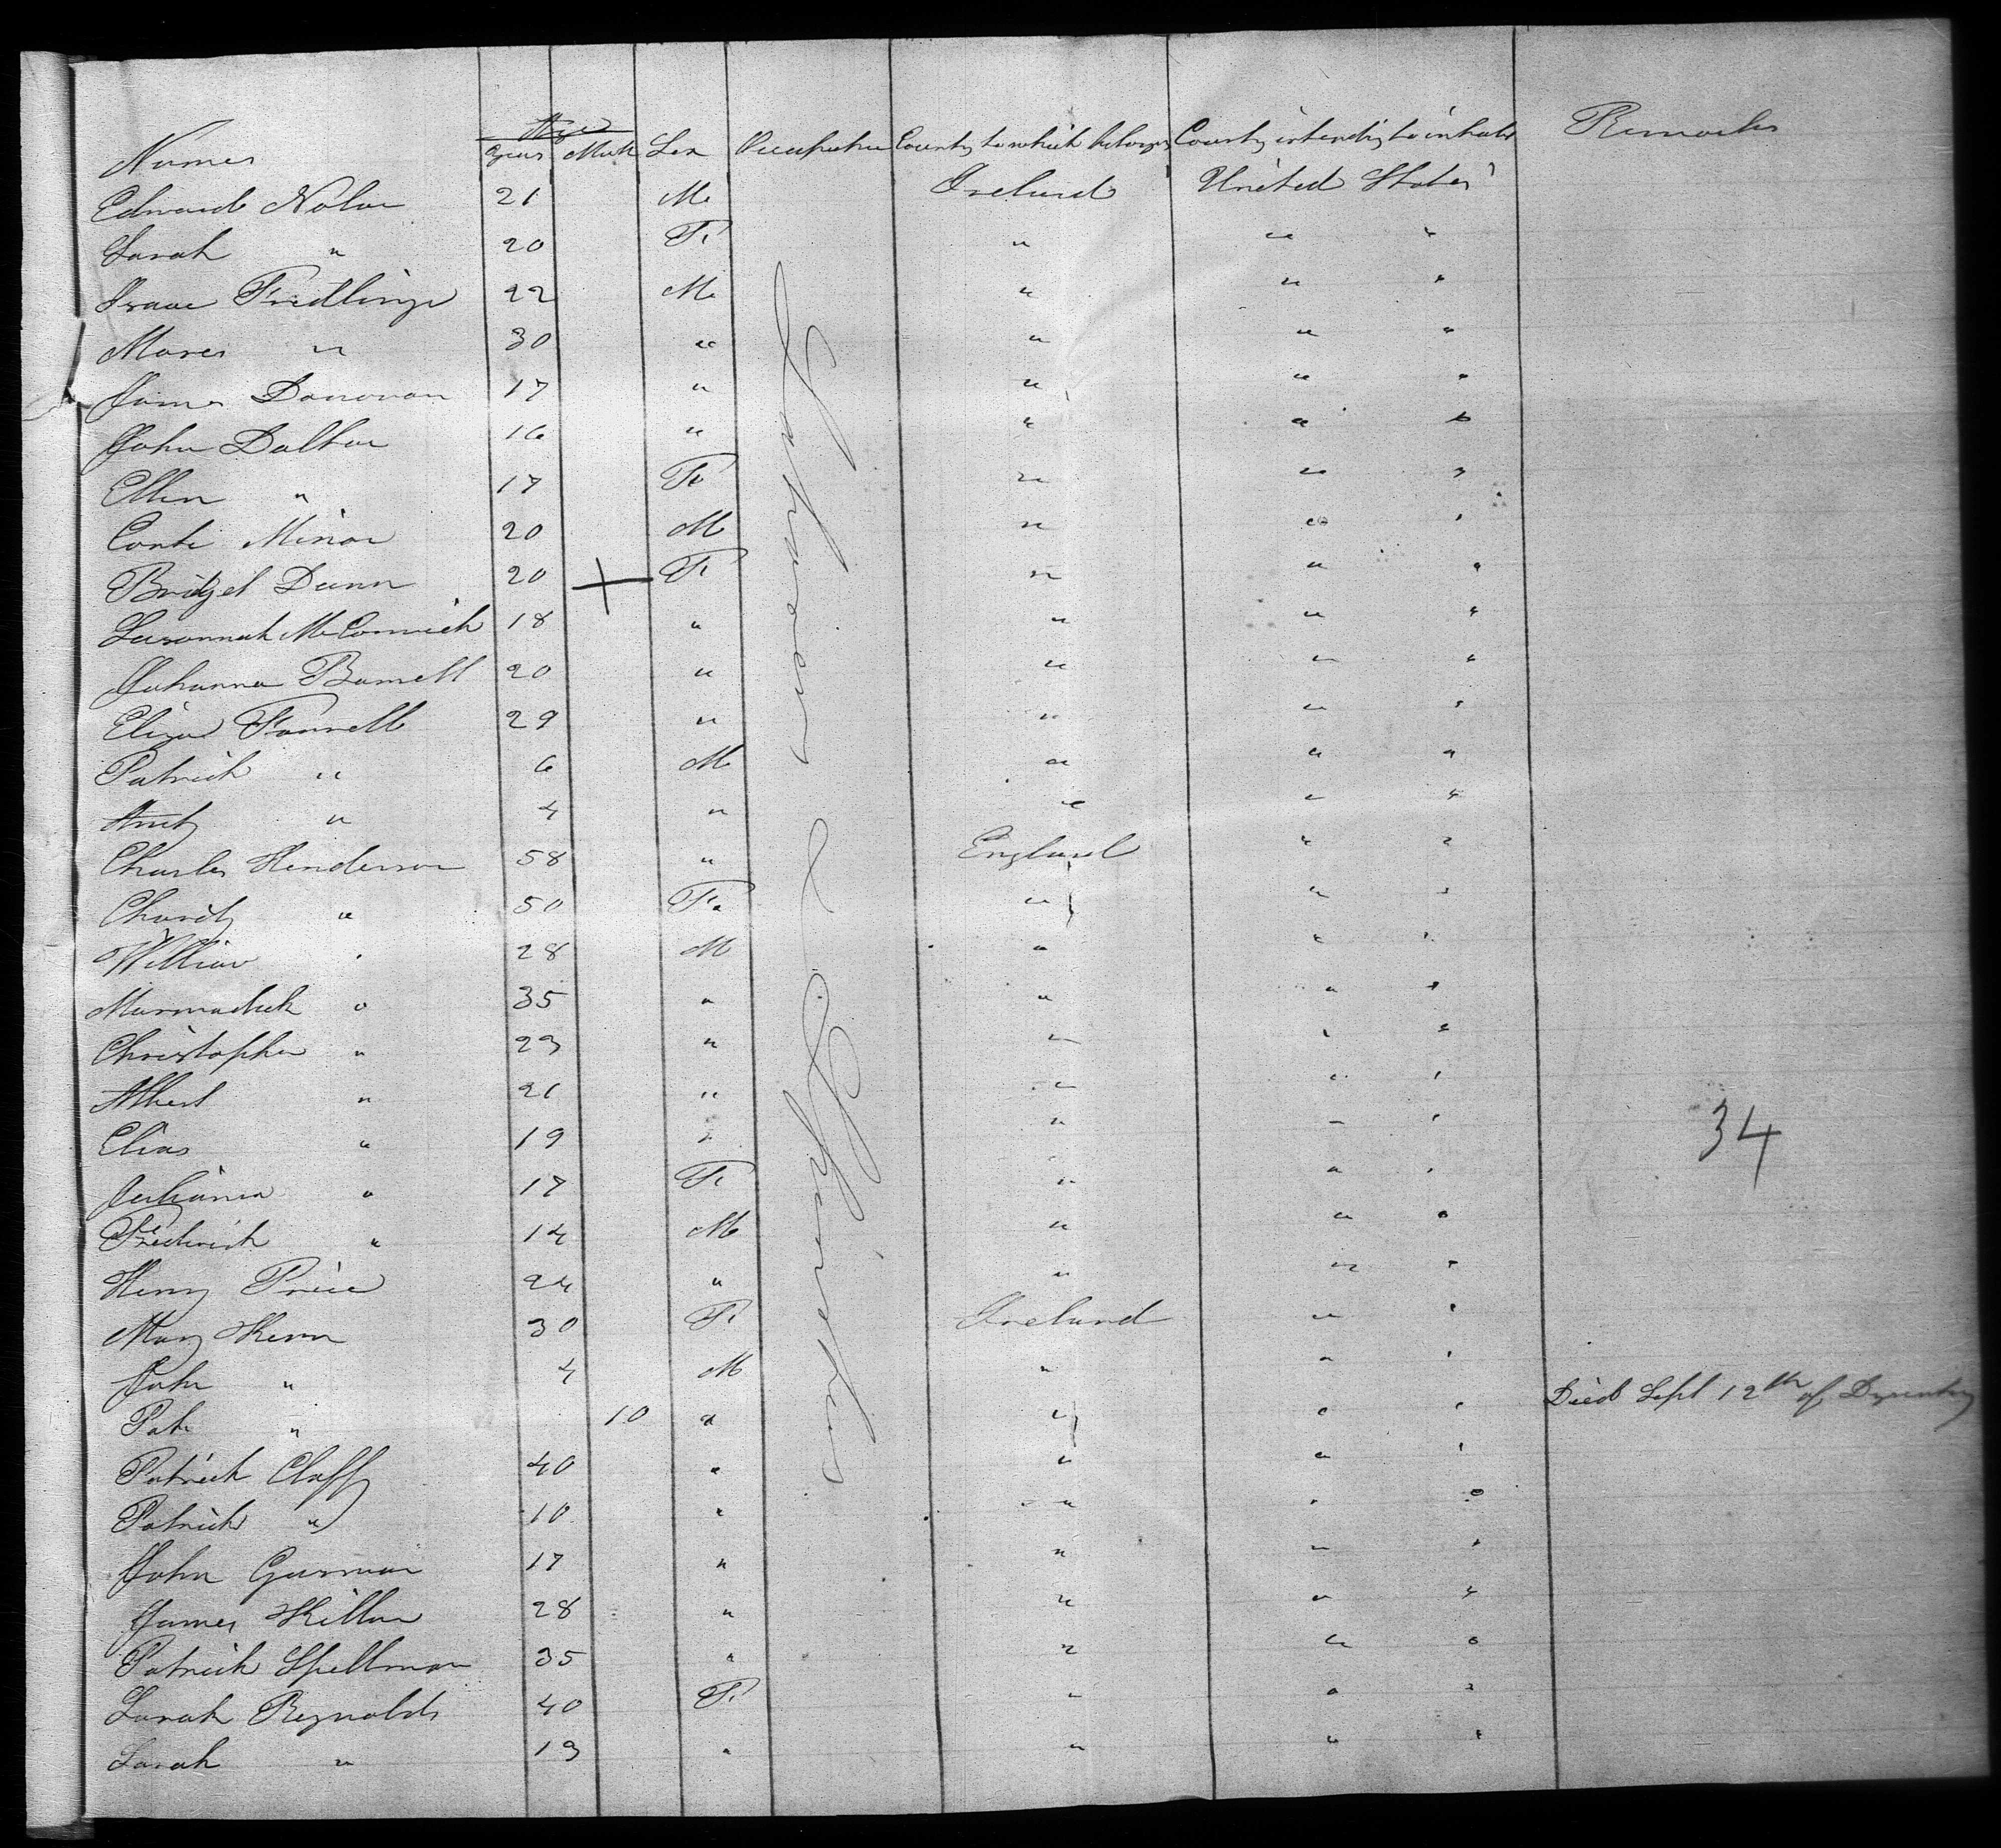 Names Age Years Mth Sex Occupation Country to which belongs Country intending to inhabit Remarks
Edward Nolan 21 M Ireland United States
Sarah " 20 F " " "
Isaac Fridlinge 22 M " " "
Moses " 30 " " " "
James Donovan 17 " " " "
John Dalton 16 " " " "
Ellen " 17 F " " "
Minor 20 M " " "
Bridget Dunn 20 + F " " "
Susannah McCormick 18 " " " "
Johanna 20 " " " "
Eliza Farrell 29 " " " "
Patrick " 6 M " " "
" 4 " " " "
Charles Henderson 58 " England " "
Charity " 50 F " " "
William " 28 M " " "
Marmaduk " 35 " " " "
Christopher " 23 " " " "
Albert " 21 " " " "
Elias " 19 " " " "
" 17 F " " "
Fredrick " 14 M " " "
Henry Price 24 " " " "
Mary Kenn 30 F Ireland " "
John " 4 M " " "
Pat " 10 " " " " Died Sept 12th of Dysentry
Patrick Claffy 40 " " " "
Patrick " 10 " " " "
John 17 " " " "
James Killan 28 " " " "
Patrick Spellman 35 " " " "
Sarah Reynolds 40 F " " "
Sarah " 13 " " " "
34